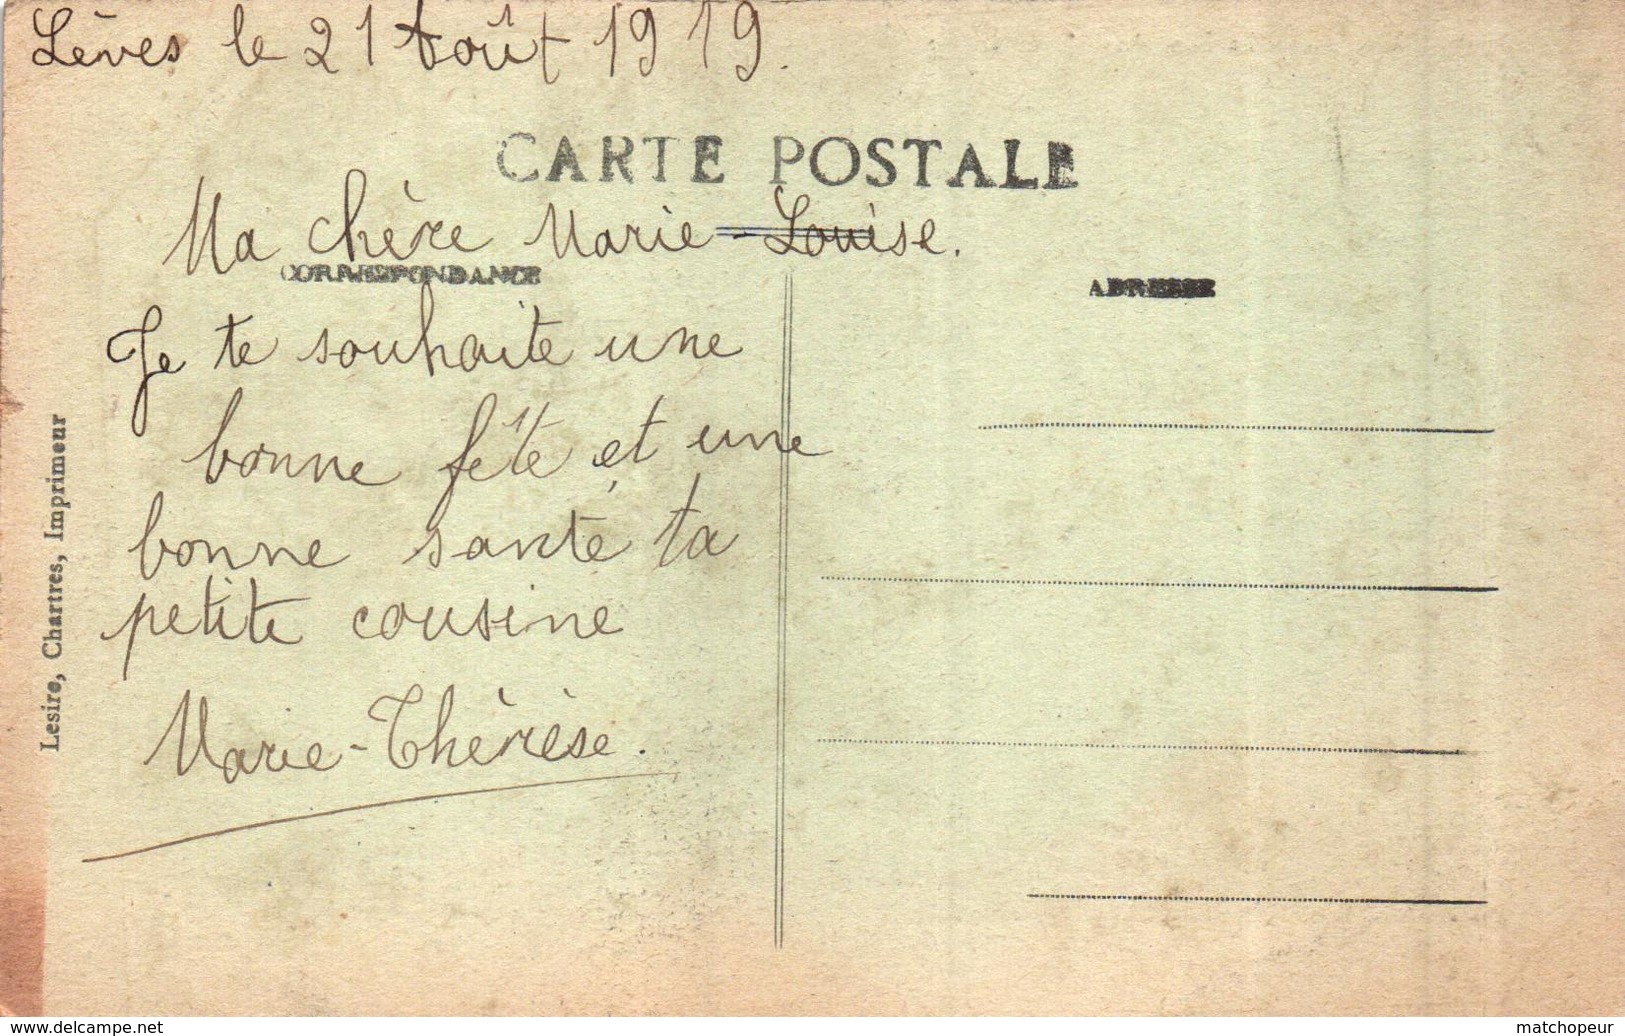 Lèves le 21 Août 1919.
CARTE POSTALE
Ma chère Marie-Louise.
CORRESPONDANCE
ADRESSE
Je te souhaite une
bonne fête et une
bonne santé, ta
petite cousine
Marie-Thérèse.
Lesire, Chartres, Imprimeur
www.delcampe.net
matchopeur